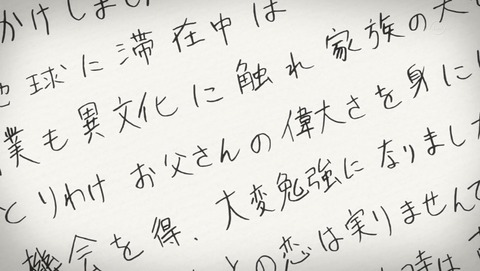 かけしまし
地球に滞在中は
業も異文化に触れ家族の大
とりわけお父さんの偉大さを身に
機会を得、大変勉強になりました
との恋は実りませんで
時は